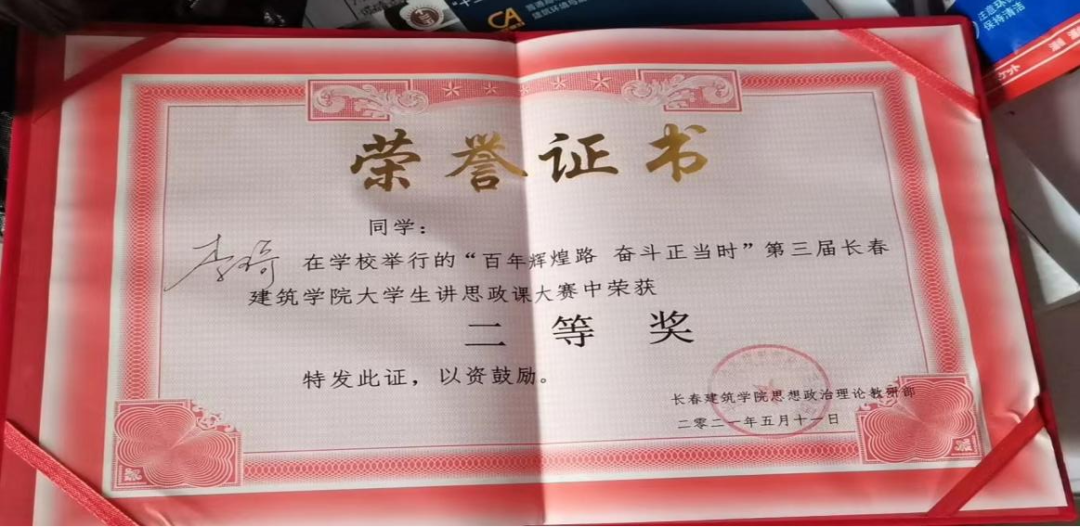 CA
注意环
保持清洁
荣誉证书
同学：
李琦
在学校举行的“百年辉煌路 奋斗正当时”第三届长春
建筑学院大学生讲思政课大赛中荣获
二等奖
特发此证，以资鼓励。
长春建筑学院思想政治理论教研部
二零二一年五月十一日